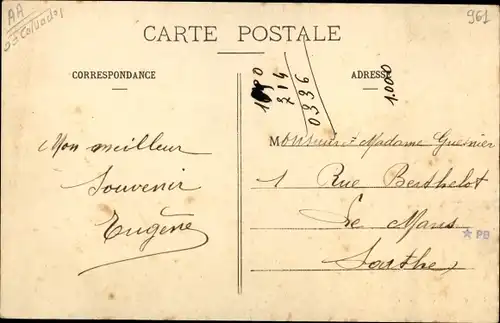 AA
Calvados
961
CARTE POSTALE
CORRESPONDANCE
ADRESSE
1690
714
0336
1.000
Mon meilleur
souvenir
Eugène
Monsieur et Madame Guesnier
1 Rue Berthelot
Le Mans
Sarthe
★ PB